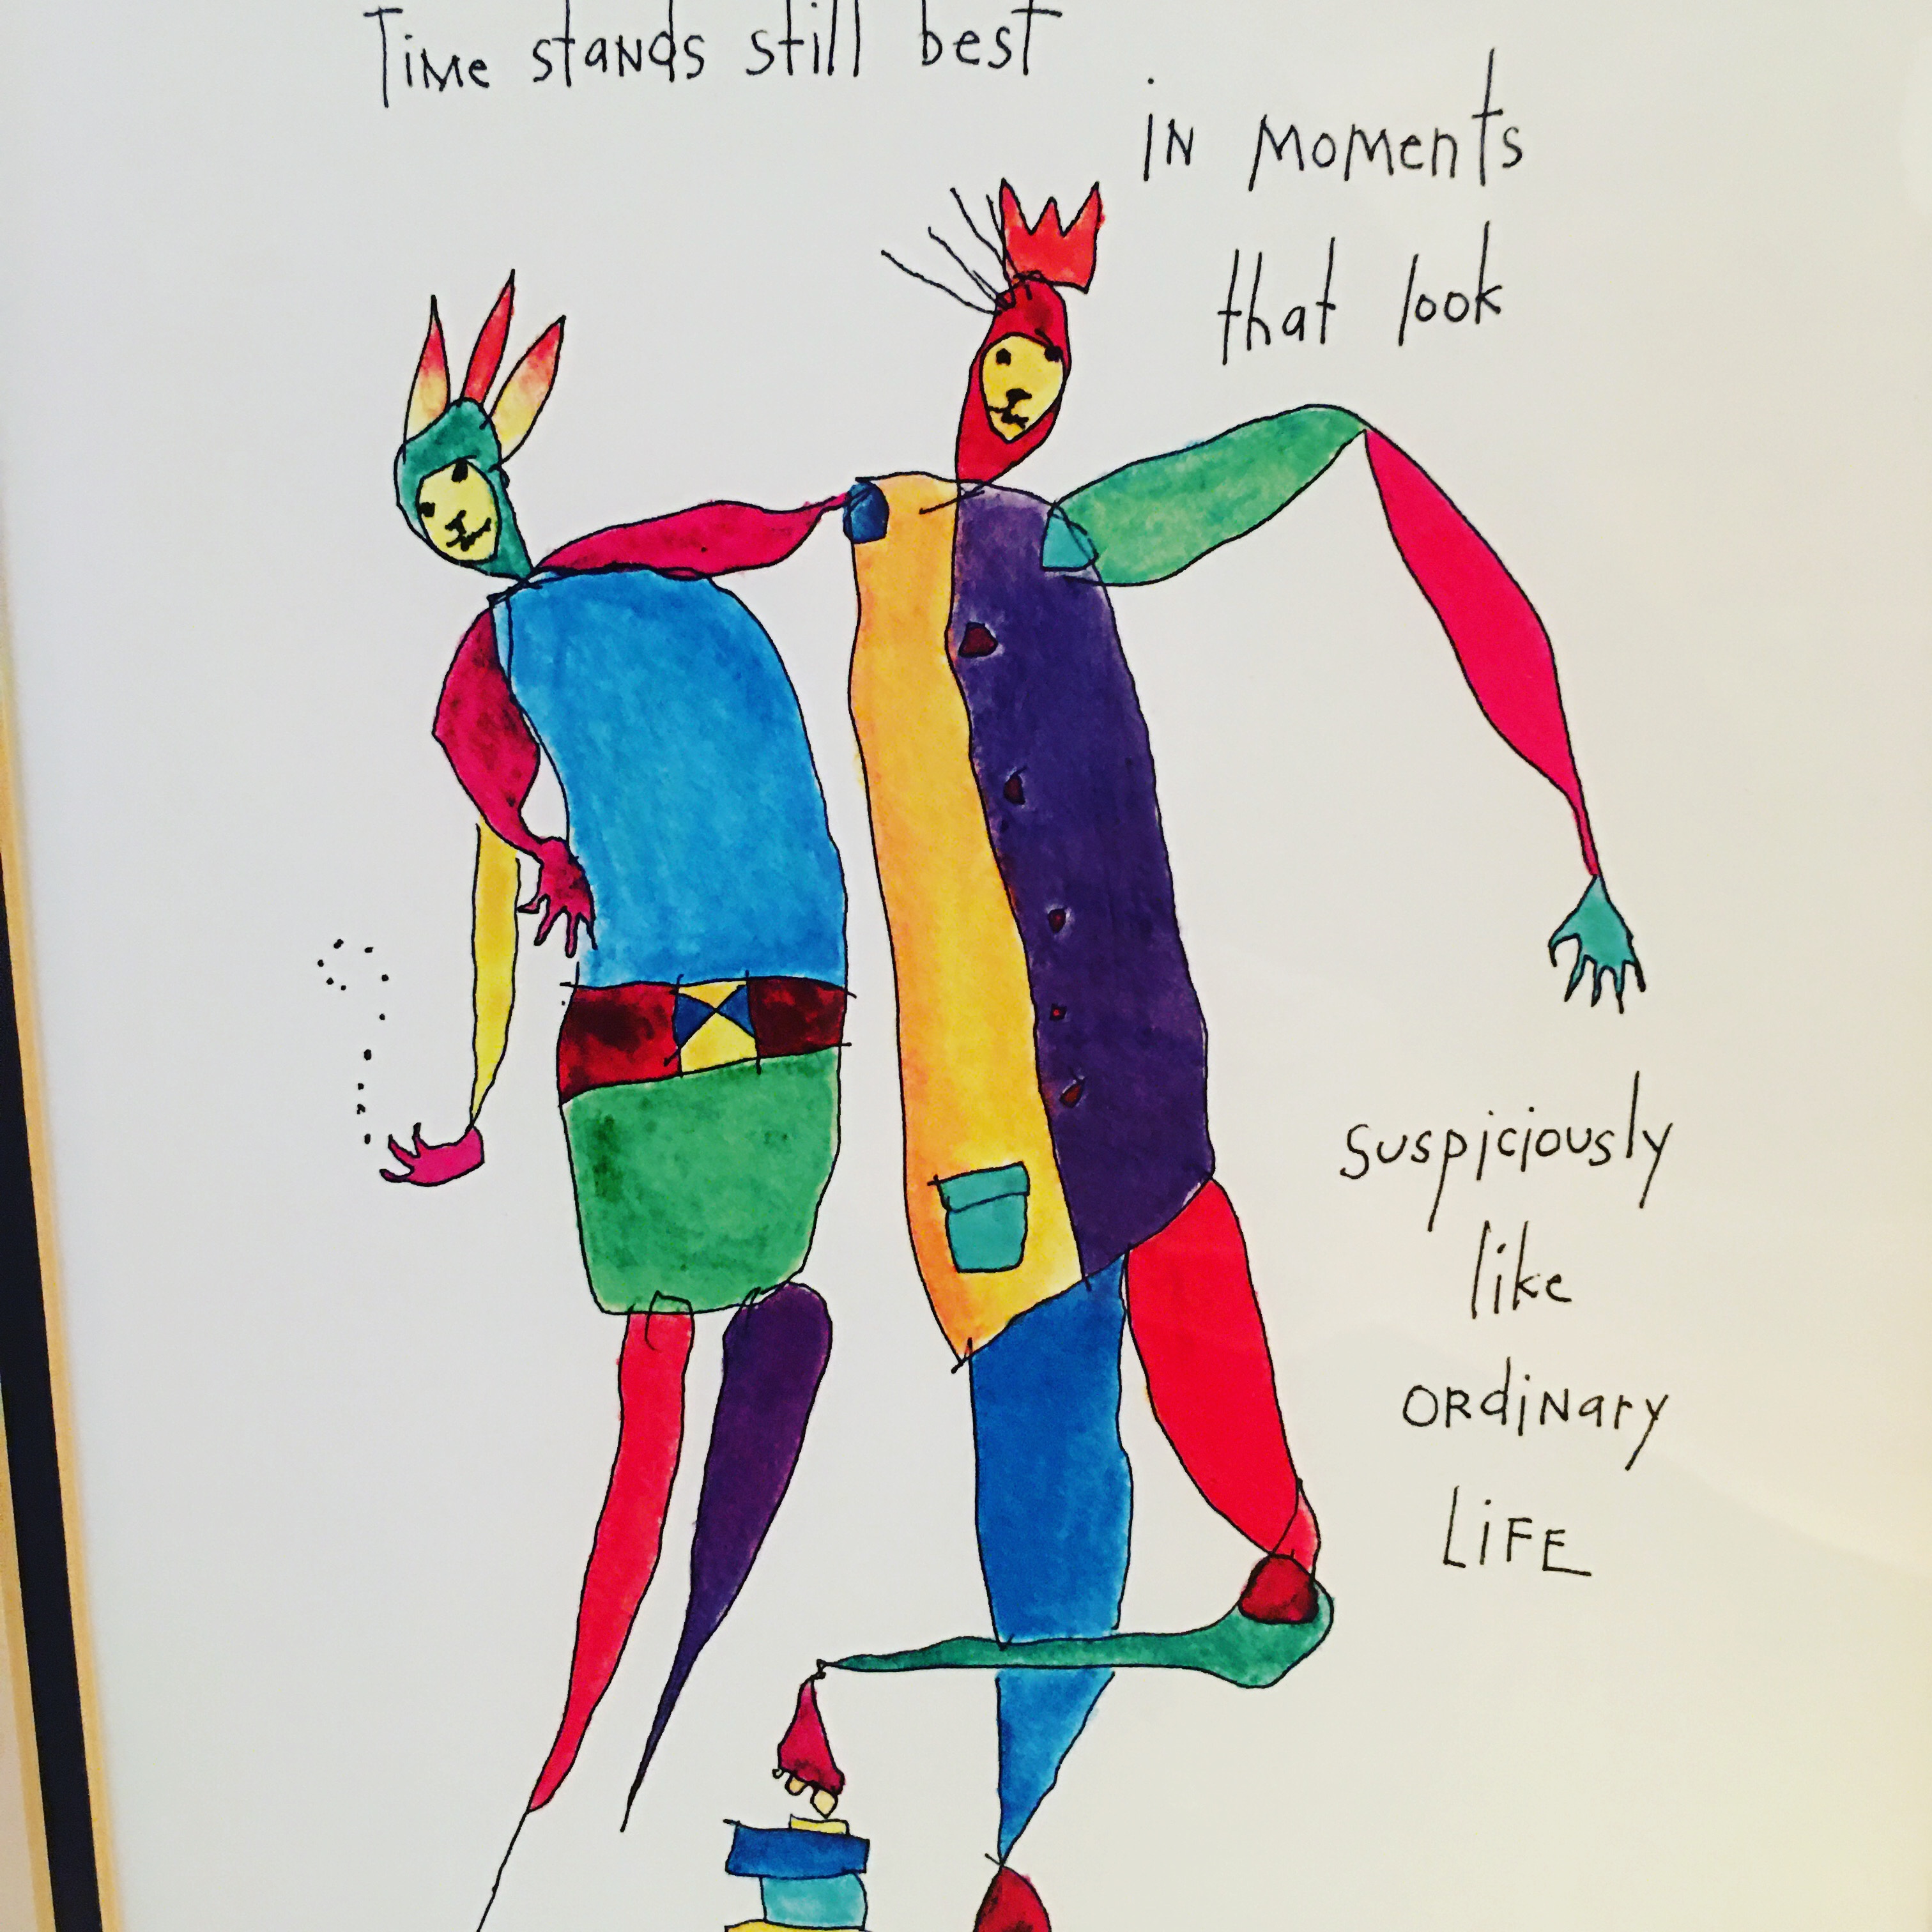 Time stands still best
in moments
that look
suspiciously
like
ordinary
life